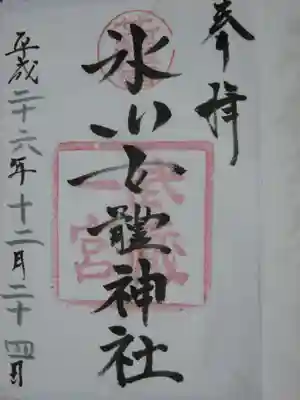 奉拝
氷川女體神社
武蔵
一宮
平成二十六年十二月二十四日